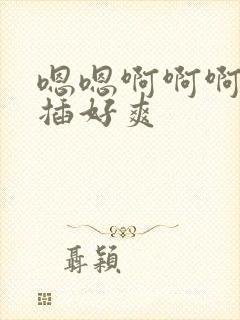 嗯嗯啊啊啊
插好爽
聶穎